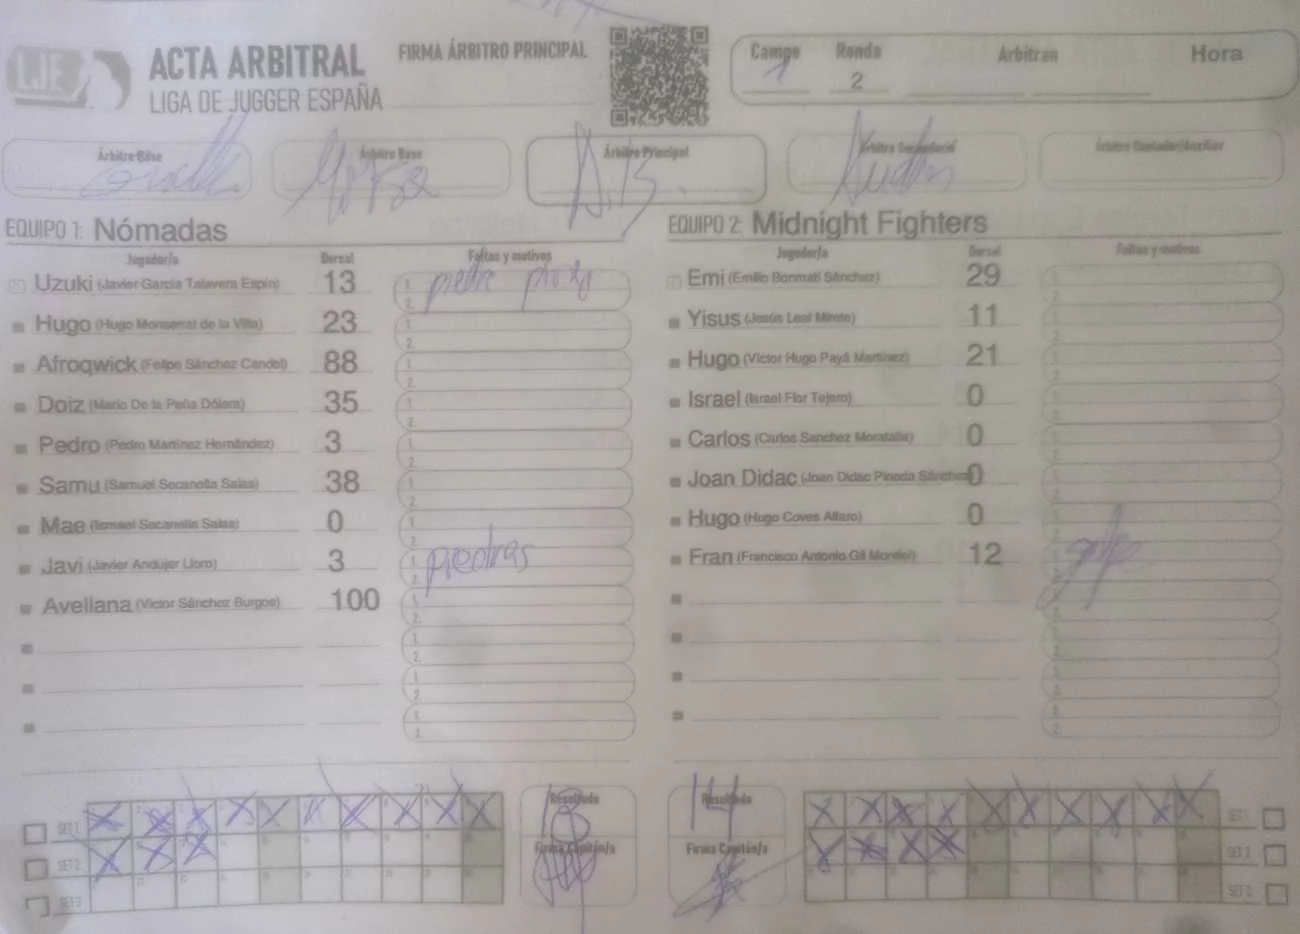 LJE
ACTA ARBITRAL
LIGA DE JUGGER ESPAÑA
FIRMA ÁRBITRO PRINCIPAL
Campo Ronda Arbitran Hora
1 2
Árbitro Base Árbitro Base Árbitro Principal Árbitro Secundario Árbitro Contador/Auxiliar
EQUIPO 1: Nómadas
Jugador/a Dorsal Faltas y motivos
Uzuki (Javier García Talavera Espín) 13 1.
2.
Hugo (Hugo Monserrat de la Villa) 23 1.
2.
Afroqwick (Felipe Sánchez Candel) 88 1.
2.
Doiz (Mario De la Peña Dólera) 35 1.
2.
Pedro (Pedro Martínez Hernández) 3 1.
2.
Samu (Samuel Socanella Salas) 38 1.
2.
Mae (Ismael Socanella Salas) 0 1.
2.
Javi (Javier Andújar Lloro) 3 1. piedras
2.
Avellana (Victor Sánchez Burgos) 100 1.
2.
1.
2.
1.
2.
1.
2.
EQUIPO 2: Midnight Fighters
Jugador/a Dorsal Faltas y motivos
Emi (Emilio Bonmatí Sánchez) 29
Yisus (Jesús Leal Mirete) 11
Hugo (Víctor Hugo Payá Martínez) 21
Israel (Israel Flor Tejero) 0
Carlos (Carlos Sanchez Moratalla) 0
Joan Didac (Joan Didac Pineda Sánchez) 0
Hugo (Hugo Coves Alfaro) 0
Fran (Francisco Antonio Gil Montiel) 12
SET 1
SET 2
SET 3
Resultado
13
Firma Capitán/a
Resultado
14
Firma Capitán/a
SET 1
SET 2
SET 3